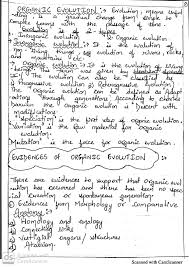 ORGANIC EVOLUTION :-
Evolution means unfol
ding is a gradual change from simple to
complex beings with the passage of time.
Evolution is of 2-types
Inorganic evolution Organic evolution.
Inorganic evolution :- It is the evolution of non
living things eg evolution of rivers, rocks
and mountains etc.
Organic evolution :- It is the evolution of living
beings. The term was given by
Evolution can also be classified
Progressive evolution Retrogressive evolution.
Organic evolution can be defined as Adapt
ations through generations. According to
the evolution is descent with
modification.
"Speciation" is the first step of organic evolution.
Variation is the raw material for organic
evolution.
Mutation is the force for organic evolution
EVIDENCES OF ORGANIC EVOLUTION :-
There are evidences to support that organic evolu
tion has occurred and there has been no spe
cial creation or spontaneous generation.
Evidences from Morphology or Comparative
Anatomy :-
1) Homology and analogy
2) Connecting links
3) Vestigial organs / structures
4) Atavism.
Scanned with CamScanner